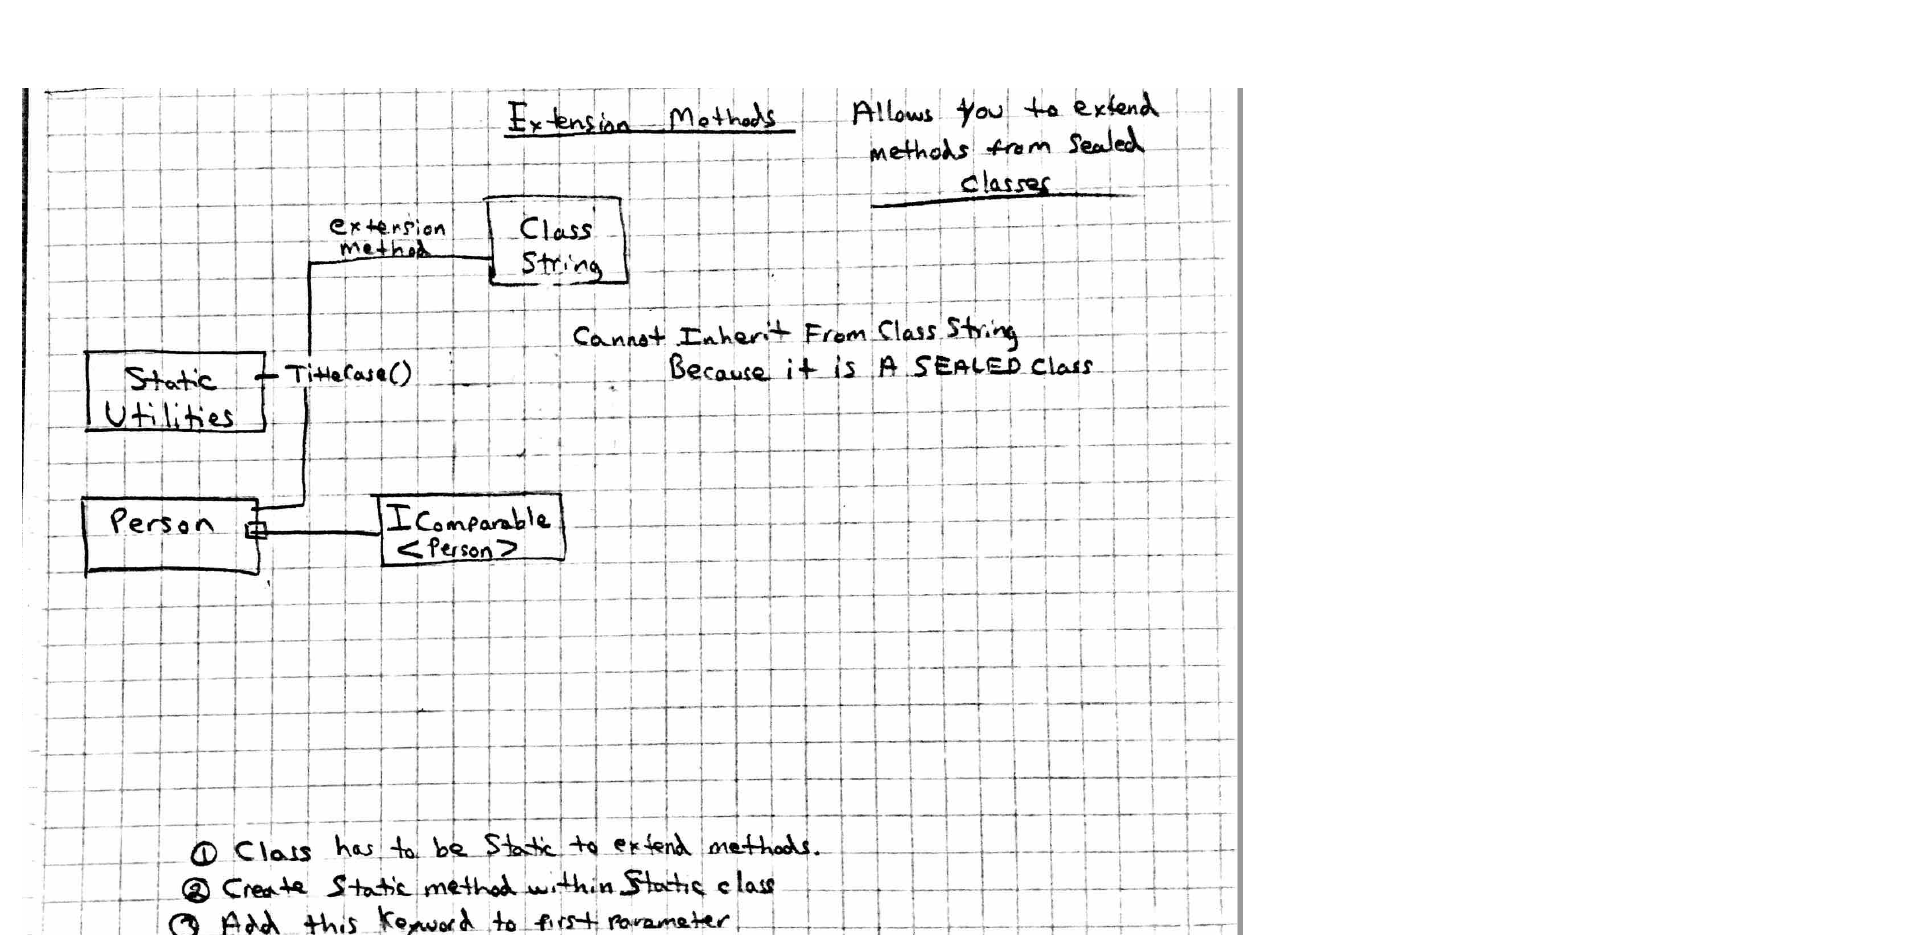 Extension Methods
Allows you to extend
methods from Sealed
Classes
extension
method
Class
String
Cannot Inherit From Class String
Because it is A SEALED Class
Static
Utilities
TitleCase()
Person
IComparable
<Person>
① Class has to be Static to extend methods.
② Create Static method within Static class
③ Add this Keyword to first parameter